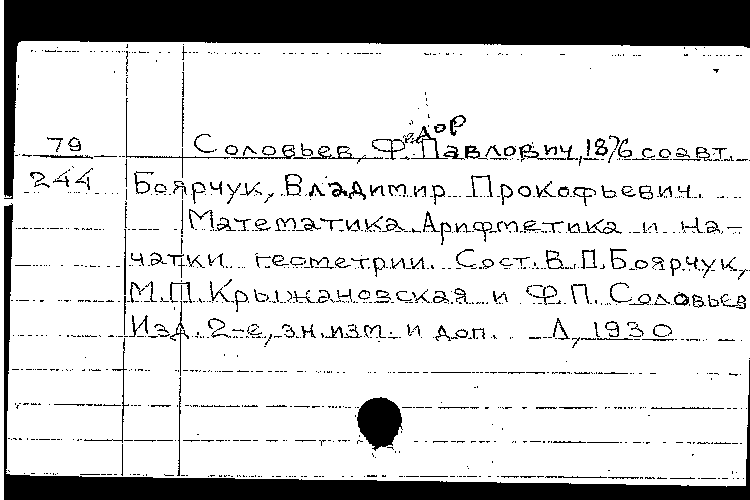 79 Соловьев, Федор Павлович, 1876 соавт.
244 Боярчук, Владимир Прокофьевич.
Математика. Арифметика и на-
чатки геометрии. Сост. В.П. Боярчук,
М.П. Крыжановская и Ф.П. Соловьев
Изд. 2-е, зн. изм. и доп. Л, 1930